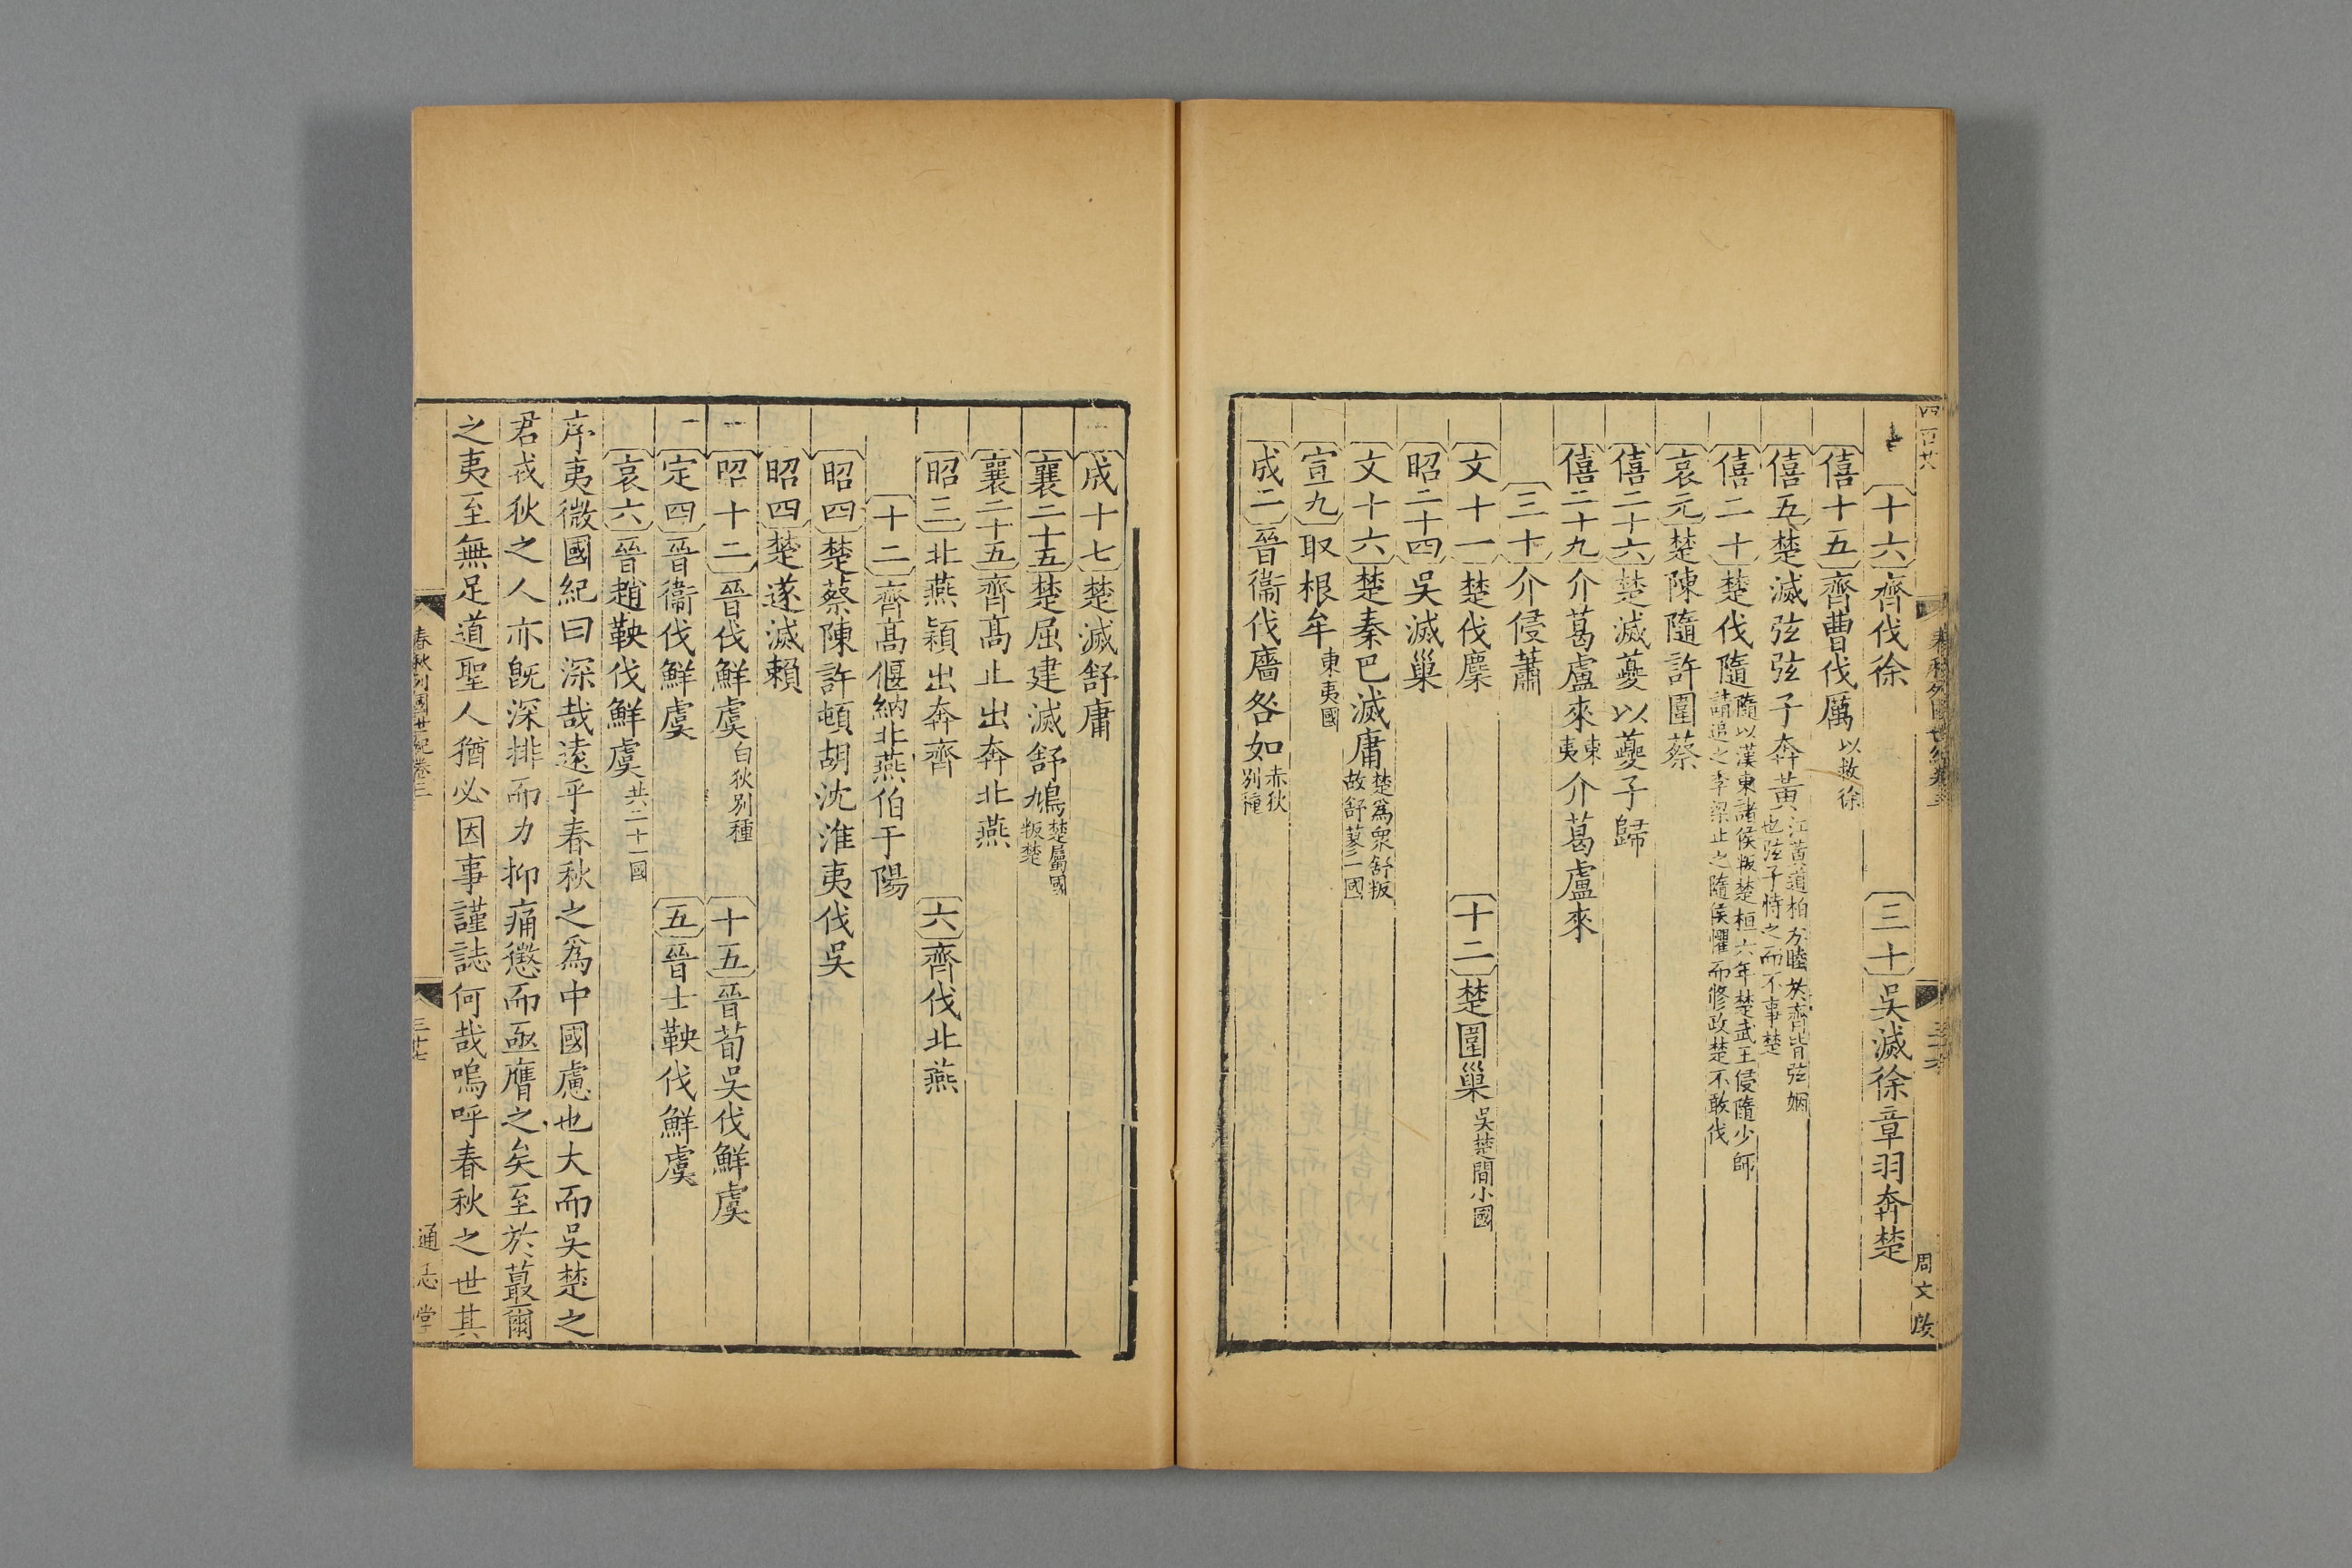 十六齊伐徐 三十吳滅徐章羽奔楚
僖十五齊曹伐厲以救徐
僖五楚滅弦弦子奔黃江黃道柏方睦於齊皆弦姻也弦子恃之而不事楚
僖二十楚伐隨隨以漢東諸侯叛楚桓六年楚武王侵隨少師請追之季梁止之隨侯懼而修政楚不敢伐
哀元楚陳隨許圍蔡
僖二十六楚滅夔以夔子歸
僖二十九介葛盧來東夷介葛盧來
三十介侵蕭
文十一楚伐麇 十二楚圍巢吳楚間小國
昭二十四吳滅巢
文十六楚秦巴滅庸楚為衆舒叛故舒蓼二國
宣九取根牟東夷國
成二晉衞伐廧咎如赤狄別種
周文啟
成十七楚滅舒庸
襄二十五楚屈建滅舒鳩楚屬國叛楚
襄二十五齊高止出奔北燕
昭三北燕穎出奔齊 六齊伐北燕
十二齊高偃納北燕伯于陽
昭四楚蔡陳許頓胡沈淮夷伐吳
昭四楚遂滅賴
昭十二晉伐鮮虞白狄別種 十五晉荀吳伐鮮虞
定四晉衞伐鮮虞 五晉士鞅伐鮮虞
哀六晉趙鞅伐鮮虞共二十一國
序夷微國紀曰深哉遠乎春秋之為中國慮也大而吳楚之
君戎狄之人亦旣深排而力抑痛懲而亟膺之矣至於蕞爾
之夷至無足道聖人猶必因事謹誌何哉嗚呼春秋之世其
春秋列國世紀卷三 三十七 通志堂